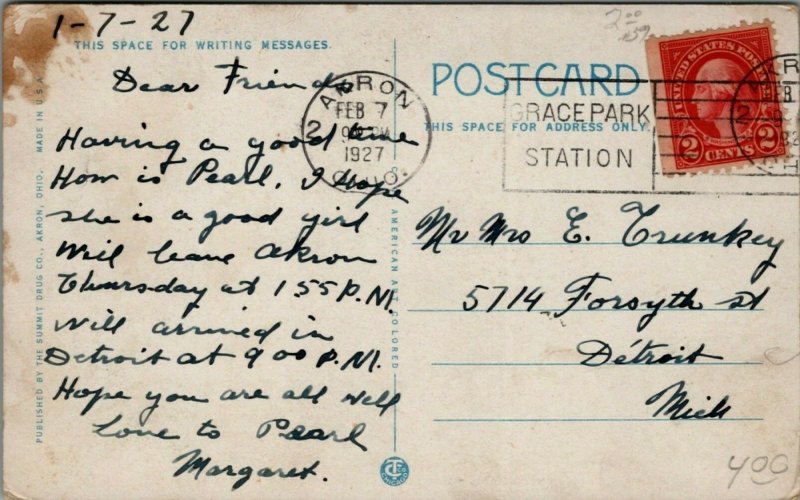 1-7-27
THIS SPACE FOR WRITING MESSAGES.
Dear Friends
Having a good time
How is Pearl. I Hope
she is a good girl
Will leave Akron
Thursday at 1 55 P.M.
Will arrived in
Detroit at 9 00 P.M.
Hope you are all well
Love to Pearl
Margaret.
PUBLISHED BY THE SUMMIT DRUG CO., AKRON, OHIO. MADE IN U.S.A.
AKRON
FEB 7
2
1927
OHIO.
AMERICAN ART COLORED
POST CARD
THIS SPACE FOR ADDRESS ONLY
GRACE PARK
STATION
UNITED STATES POSTAGE
2 CENTS 2
2 00
Mr Mrs E. Trunkey
5714 Forsyth st
Détroit
Mich
400